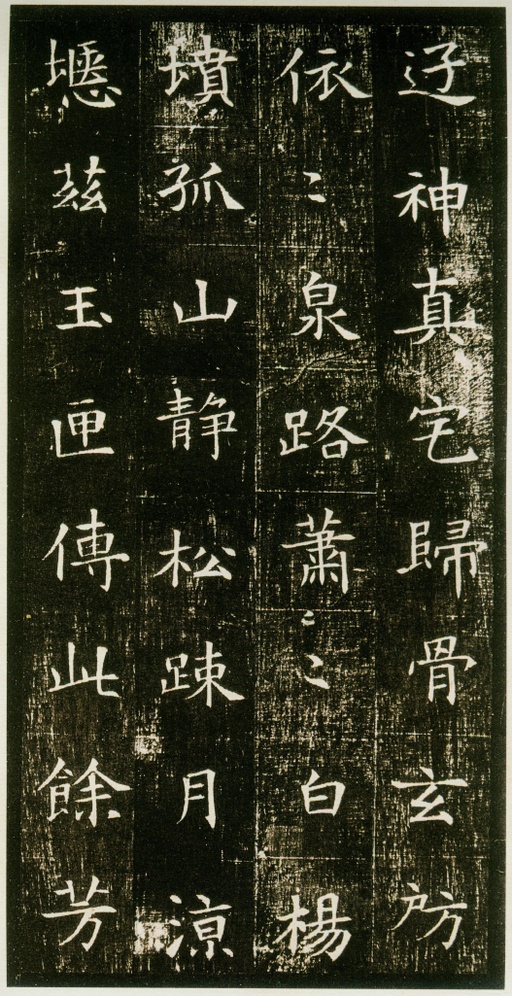 迁神真宅歸骨玄房
依〻泉路蕭〻白楊
墳孤山静松踈月涼
瘞兹玉匣傳此餘芳